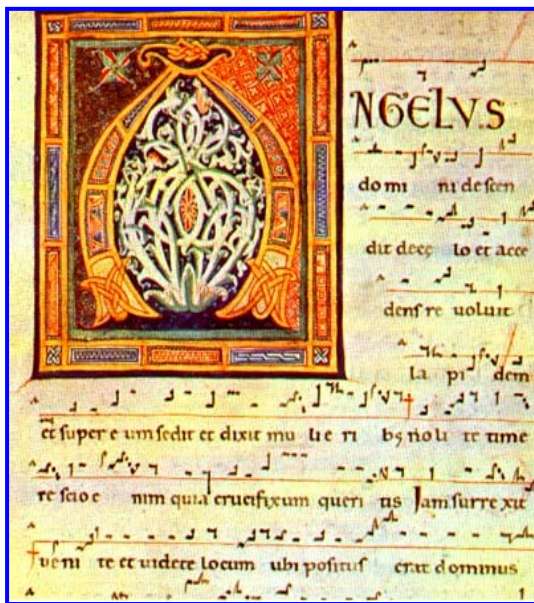 ANGELVS
do mi ni de scen
dit de cę lo et acce
dens re uoluit
la pi dem
et super e um sedit et dixit mu lie ri bꝫ noli te time
re scio e nim quia crucifixum queri tis Jam surre xit
ueni te et uidete locum ubi positus erat dominus